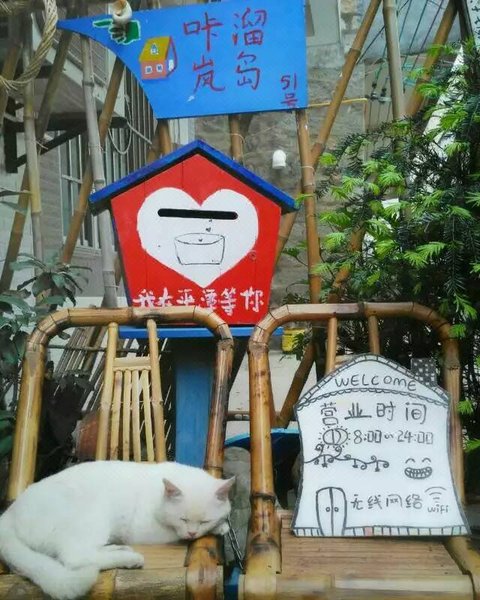 咔溜
岚岛
51号
我在平潭等你
WELCOME
营业时间
8:00~24:00
无线网络 wifi